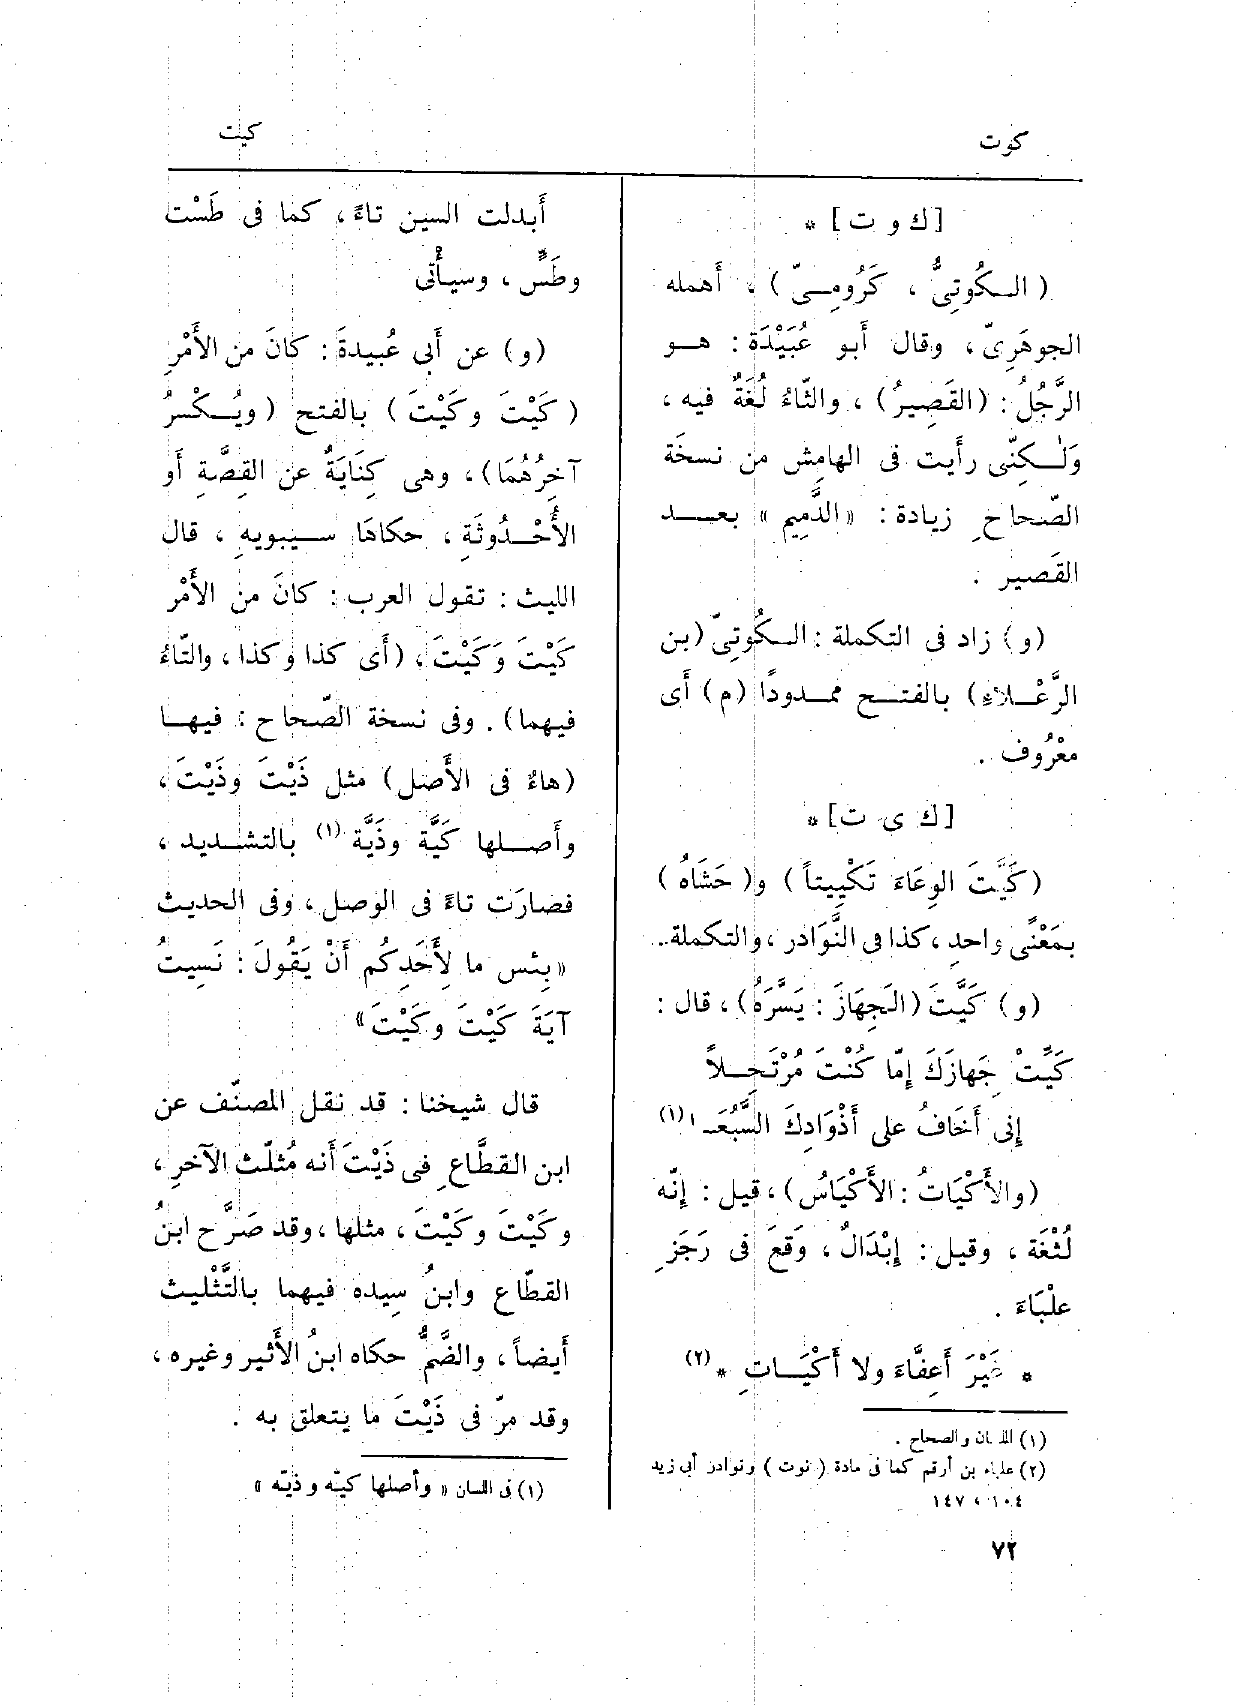 كوت
كيت
[ك و ت] *
(الـكُوتِىُّ ، كَرُومِـىّ) ، أهمله
الجوهَرِىّ ، وقال أبو عُبَيْدَة : هـو
الرَّجُلُ : (القَصِيرُ) ، والثّاءُ لُغَةٌ فيه ،
وَلٰـكِنّى رأيت فى الهامِش من نسخَة
الصّحاحِ زيادة : «الدَّمِيم» بعـد
القَصير .
(و) زاد فى التكملة : الـكُوتِىّ (بن
الرَّعْـلاءِ) بالفتـح ممـدودًا (م) أى
معْرُوف .
[ك ى ت] *
(كَيَّتَ الوِعَاءَ تَكْيِيتاً) و(حَشَاهُ)
بمَعْنًى واحدِ ، كذا فى النَّوَادر ، والتكملة .
(و) كَيَّتَ (الجَهِازَ : يَسَّرَهُ) ، قال :
كَيِّتْ جَهازَكَ إمّا كُنْتَ مُرْتَحِـلاً
إنى أَخَافُ على أَذْوَادِكَ السَّبُعَـا (١)
(والأَكْيَاتُ : الأَكْيَاسُ) ، قيل : إنّه
لُثْغَة ، وقيل : إبْدَالٌ ، وَقعَ فى رَجَزِ
علْبَاءَ .
* غَيْرَ أَعِفَّاءَ ولا أَكْيَـاتِ * (٢)
(١) اللسان والصحاح .
(٢) علباء بن أرقم كما فى مادة (نوت) ونوادر أبى زيد
١٠٤ ، ١٤٧
أَبدلت السين تاءً ، كما فى طَسْت
وطَسٍّ ، وسيأْتى
(و) عن أَبى عُبيدةَ : كانَ من الأَمْرِ
(كَيْتَ وكَيْتَ) بالفتح (ويُـكْسرُ
آخِرُهُمَا) ، وهى كِنَايَةٌ عن القِصَّة أو
الأُحْـدُوثَةِ ، حكاهَا سـيبويهِ ، قال
الليث : تقول العرب : كانَ من الأَمْر
كَيْتَ وَكَيْتَ ، (أَى كذا وكذا ، والتّاءُ
فيهما) . وفى نسخة الصّحاح : فيهـا
(هاءٌ فى الأَصل) مثل ذَيْتَ وذَيْتَ ،
وأَصـلها كَيَّة وذَيَّة (١) بالتشـديد ،
فصارَت تاءً فى الوصل ، وفى الحديث
«بِئس ما لِأَحَدِكُم أَنْ يَقُولَ : نَسِيتُ
آيَةَ كَيْتَ وكَيْتَ»
قال شيخنا : قد نقل المصنّف عن
ابن القطَّاعِ فى ذَيْتَ أنه مُثلّث الآخرِ ،
وكَيْتَ وكَيْتَ ، مثلها ، وقد صَرَّح ابنُ
القطّاع وابنُ سِيده فيهما بالتَّثْليث
أيضاً ، والضَّمُّ حكاه ابنُ الأَثير وغيره ،
وقد مرّ فى ذَيْتَ ما يتعلق به .
(١) فى اللسان «وأصلها كيّه وذيّه»
٧٢